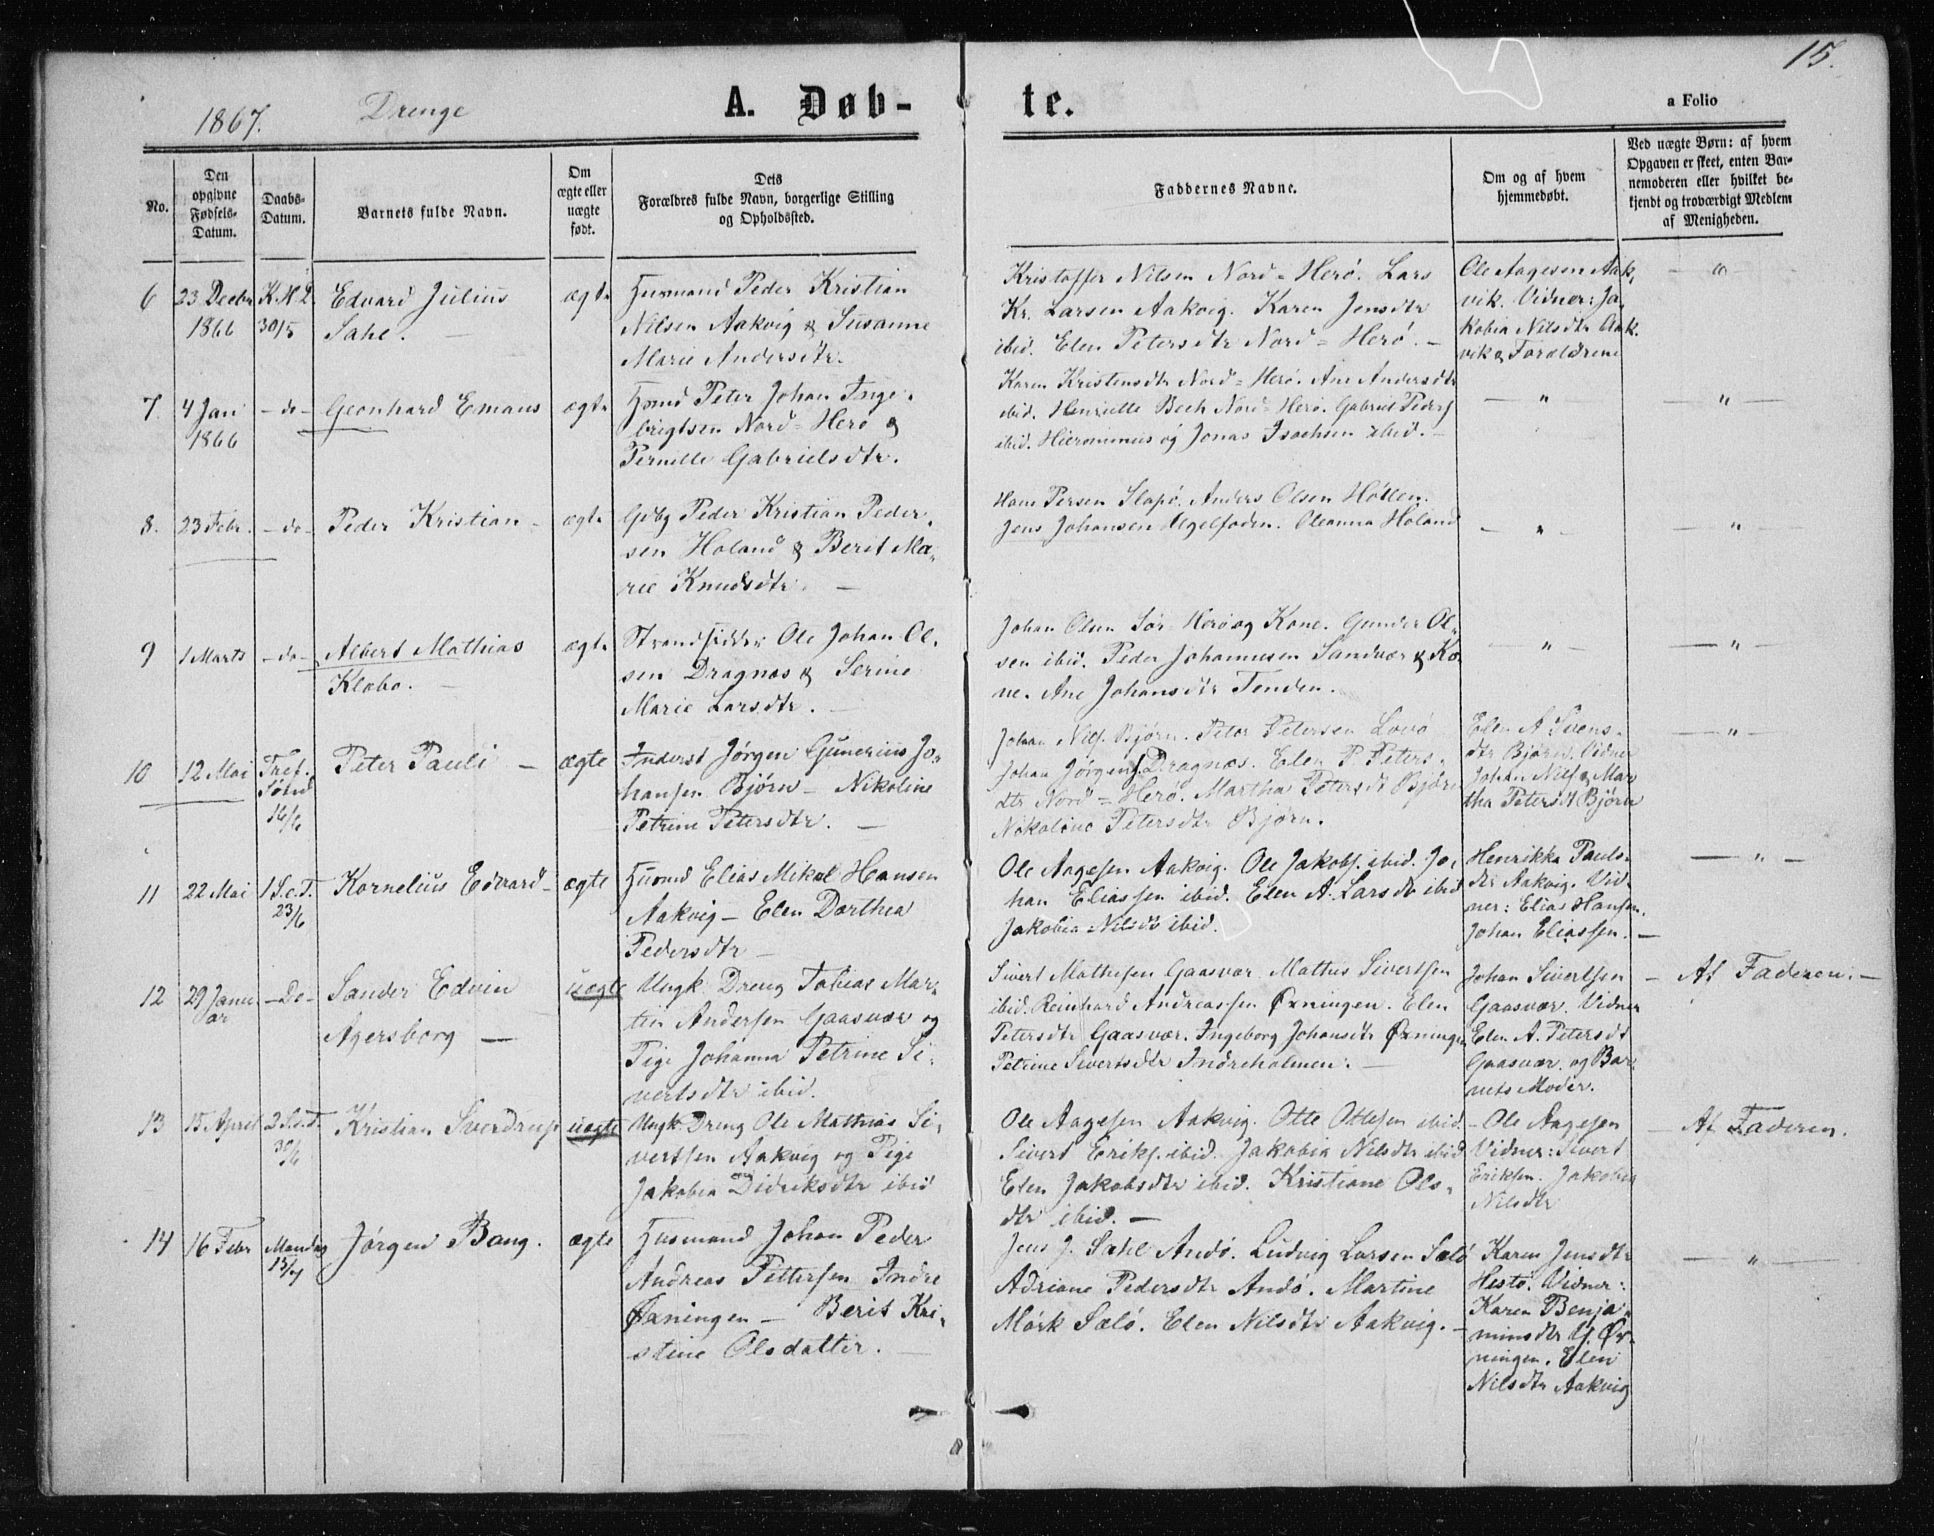 15.
1867. Drenge A. Døb- te. a Folio
No.
Den opgivne Fødsels-Datum.
Daabs-Datum.
Barnets fulde Navn.
Om ægte eller uægte født.
Dets Forældres fulde Navn, borgerlige Stilling og Opholdssted.
Faddernes Navne.
Om og af hvem hjemmedøbt.
Ved uægte Børn: af hvem Opgaven er skeet, enten Barnemoderen eller hvilket bekjendt og troværdigt Medlem af Menigheden.
6
23 Decbr
1866
K. H. D.
30/5
Edvard Julius
Sahl. —
ægte
Husmand Peder Kristian
Nilsen Aakvig & Susanne
Marie Andersdtr.
Kristoffer Nilsen Nord=Herø. Lars
Kr. Larsen Aakvig. Karen Jensdtr
ibid. Elen Petersdtr Nord=Herø. —
Ole Aagesen Aak,
vik. Vidner: Ja,
kobia Nilsdtr Aak.
vik & Forældrene
— " —
7.
4 Jan
1866
— do —
Leonhard Emaus
ægte
Hsmd Peter Johan Inge,
brigtsen Nord=Herø &
Pernille Gabrielsdtr.
Karen Kristensdtr Nord=Herø. Ane Andersdtr
ibid. Henriette Bech Nord=Herø. Gabriel Peders
ibid. Hieronimus og Jonas Isachsen ibid. —
— " —
— " —
8.
23 Febr.
— do —
Peder Kristian —
ægte
Gdbg Peder Kristian Peder,
sen Holand & Berit Ma,
rie Knudsdtr. —
Hans Persen Slapø. Anders Olsen Høllen.
Jens Johansen Igelfoden. Oleanna Holand
— " —
— " —
9
1 Marts
— do —
Albert Mathias
Klæbo. —
ægte
Strandsidder Ole Johan Ol,
sen Dragnæs & Serine
Marie Larsdtr. —
Johan Olsen Sør-Herø og Kone. Gunder Ol,
sen ibid. Peder Johannesen Sandvær & Ko,
ne. Ane Johansdtr Tenden.
— " —
— " —
10
12 Mai
Tref.
Sønd
16/6
Peter Pauli —
ægte
Inderst Jørgen Gunerius Jo,
hansen Bjørn — Nikoline
Petrine Petersdtr. —
Johan Nils. Bjørn. Peter Petersen Lovø
Johan Jørgens. Dragnæs. Elen P. Peters,
dtr Nord=Herø. Martha Petersdt Bjørn
Nikoline Petersdtr Bjørn.
Elen A. Svens,
dtr Bjørn. Vidner
Johan Nils & Mar
tha Petersdt Bjørn
— " —
11
22 Mai
1 S.e.T.
23/6
Kornelius Edvard —
ægte
Husmd Elias Mikal Hansen
Aakvig — Elen Dorthea
Pedersdtr —
Ole Aagesen Aakvig. Ole Jakobs. ibid. Jo,
han Eliassen ibid. Elen A. Larsdtr ibid
Jakobia Nilsdtr ibid.
Henrikka Pauls,
dtr Aakvig. Vid,
ner: Elias Hansen.
Johan Eliassen. —
— " —
12
29 Janu
ar
— Do —
Sander Edvin
Agersborg —
uægte
Ungk. Dreng Tobias Mar,
tin Andersen Gaasvær og
Pige Johanna Petrine Si,
vertsdtr ibid.
Sivert Mathisen Gaasvær. Mathis Sivertsen
ibid. Reinhard Andreassen Øxningen. Elen
Petersdtr Gaasvær. Ingeborg Johansdtr Øxningen
Petrine Sivertsdtr Indreholmen. —
Johan Sivertsen
Gaasvær. Vidner
Elen A. Petersdt
Gaasvær. og Bar,
nets Moder.
— Af Faderen. —
13
15 April
2 S.e.T.
30/6
Kristian Sverdrup
uægte
Ungk. Dreng Ole Mathias Si,
vertsen Aakvig og Pige
Jakobia Didriksdtr ibid
Ole Aagesen Aakvig. Otte Ottesen ibid.
Sivert Eriks. ibid. Jakobia Nilsdtr ibid
Elen Jakobsdtr ibid. Kristiane Ols,
dtr ibid. —
— Ole Aagesen
Vidner: Sivert
Eriksen. Jakobia
Nilsdtr
— Af Faderen.
14
16 Febr
Mandag
15/7
Jørgen Bang.
ægte
Husmand Johan Peder
Andreas Pettersen Indre
Øxningen — Berit Kri,
stine Olsdatter. —
Jens J. Sahl Andø. Ludvig Larsen Sælø
Adriane Pedersdtr Andø. Martine
Mørk Sælø. Elen Nilsdtr Aakvig. —
Karen Jensdtr
Hestø. Vidner:
Karen Benja,
minsdtr Y. Øx,
ningen. Elen
Nilsdtr Aakvig
— " —